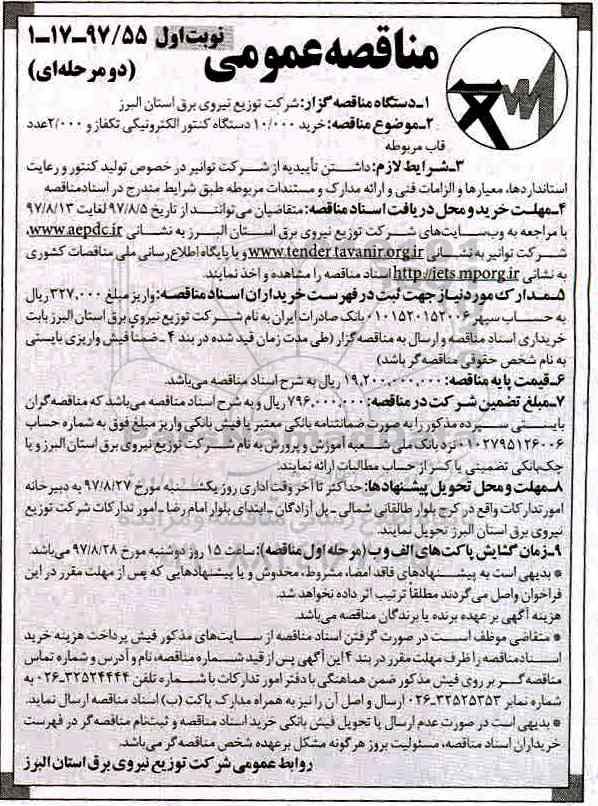 نوبت اول ۹۷/۵۵-۱۷-۱
مناقصه عمومی
(دو مرحله‌ای)
۱-دستگاه مناقصه گزار: شرکت توزیع نیروی برق استان البرز
۲-موضوع مناقصه: خرید ۱۰/۰۰۰ دستگاه کنتور الکترونیکی تکفاز و ۲/۰۰۰عدد
قاب مربوطه
۳-شرایط لازم: داشتن تأییدیه از شرکت توانیر در خصوص تولید کنتور و رعایت
استانداردها، معیارها و الزامات فنی و ارائه مدارک و مستندات مربوطه طبق شرایط مندرج در اسناد مناقصه
۴-مهلت خرید و محل دریافت اسناد مناقصه: متقاضیان می‌توانند از تاریخ ۹۷/۸/۵ لغایت ۹۷/۸/۱۳
با مراجعه به وب‌سایت‌های شرکت توزیع نیروی برق استان البرز به نشانی www.aepdc.ir،
شرکت توانیر به نشانی www.tender.tavanir.org.ir و یا پایگاه اطلاع رسانی ملی مناقصات کشوری
به نشانی http://iets.mporg.ir اسناد مناقصه را مشاهده و اخذ نمایند.
۵-مدارک مورد نیاز جهت ثبت در فهرست خریداران اسناد مناقصه: واریز مبلغ ۳۲۷,۰۰۰ ریال
به حساب سپهر ۰۱۰۱۵۲۰۱۵۲۰۰۶ بانک صادرات ایران به نام شرکت توزیع نیروی برق استان البرز بابت
خریداری اسناد مناقصه و ارسال به مناقصه گزار (طی مدت زمان قید شده در بند ۴ - ضمنا فیش واریزی بایستی
به نام شخص حقوقی مناقصه گر باشد)
۶-قیمت پایه مناقصه: ۱۹,۲۰۰,۰۰۰,۰۰۰ ریال به شرح اسناد مناقصه می‌باشد.
۷-مبلغ تضمین شرکت در مناقصه: ۷۹۶,۰۰۰,۰۰۰ ریال و به شرح اسناد مناقصه می‌باشد که مناقصه گران
بایستی سپرده مذکور را به صورت ضمانتنامه بانکی معتبر یا فیش بانکی واریز مبلغ فوق به شماره حساب
۰۱۰۲۷۹۵۱۲۶۰۰۶ نزد بانک ملی شعبه آموزش و پرورش به نام شرکت توزیع نیروی برق استان البرز و یا
چک بانکی تضمینی یا کسر از حساب مطالبات ارائه نمایند.
۸-مهلت و محل تحویل پیشنهادها: حداکثر تا آخر وقت اداری روز یکشنبه مورخ ۹۷/۸/۲۷ به دبیرخانه
امور تدارکات واقع در کرج بلوار طالقانی شمالی - پل آزادگان - ابتدای بلوار امام رضا - امور تدارکات شرکت توزیع
نیروی برق استان البرز تحویل نمایند.
۹-زمان گشایش پاکت های الف و ب (مرحله اول مناقصه): ساعت ۱۵ روز دوشنبه مورخ ۹۷/۸/۲۸ می‌باشد.
* بدیهی است به پیشنهادهای فاقد امضا، مشروط، مخدوش و یا پیشنهادهایی که پس از مهلت مقرر در این
فراخوان واصل می‌گردند مطلقا ترتیب اثر داده نخواهد شد.
هزینه آگهی بر عهده برنده یا برندگان مناقصه می‌باشد.
* متقاضی موظف است در صورت گرفتن اسناد مناقصه از سایت‌های مذکور فیش پرداخت هزینه خرید
اسناد مناقصه را ظرف مهلت مقرر در بند ۴ این آگهی پس از قید شماره مناقصه، نام و آدرس و شماره تماس
مناقصه گر بر روی فیش مذکور ضمن هماهنگی با دفتر امور تدارکات با شماره تلفن ۳۲۵۲۴۴۴۴-۰۲۶ به
شماره نمابر ۳۲۵۲۵۳۵۳-۰۲۶ ارسال و اصل آن را نیز به همراه مدارک پاکت (ب) اسناد مناقصه ارسال نماید.
* بدیهی است در صورت عدم ارسال یا تحویل فیش بانکی خرید اسناد مناقصه و ثبت‌نام مناقصه‌گر در فهرست
خریداران اسناد مناقصه، مسئولیت بروز هرگونه مشکل بر عهده شخص مناقصه گر می‌باشد.
روابط عمومی شرکت توزیع نیروی برق استان البرز